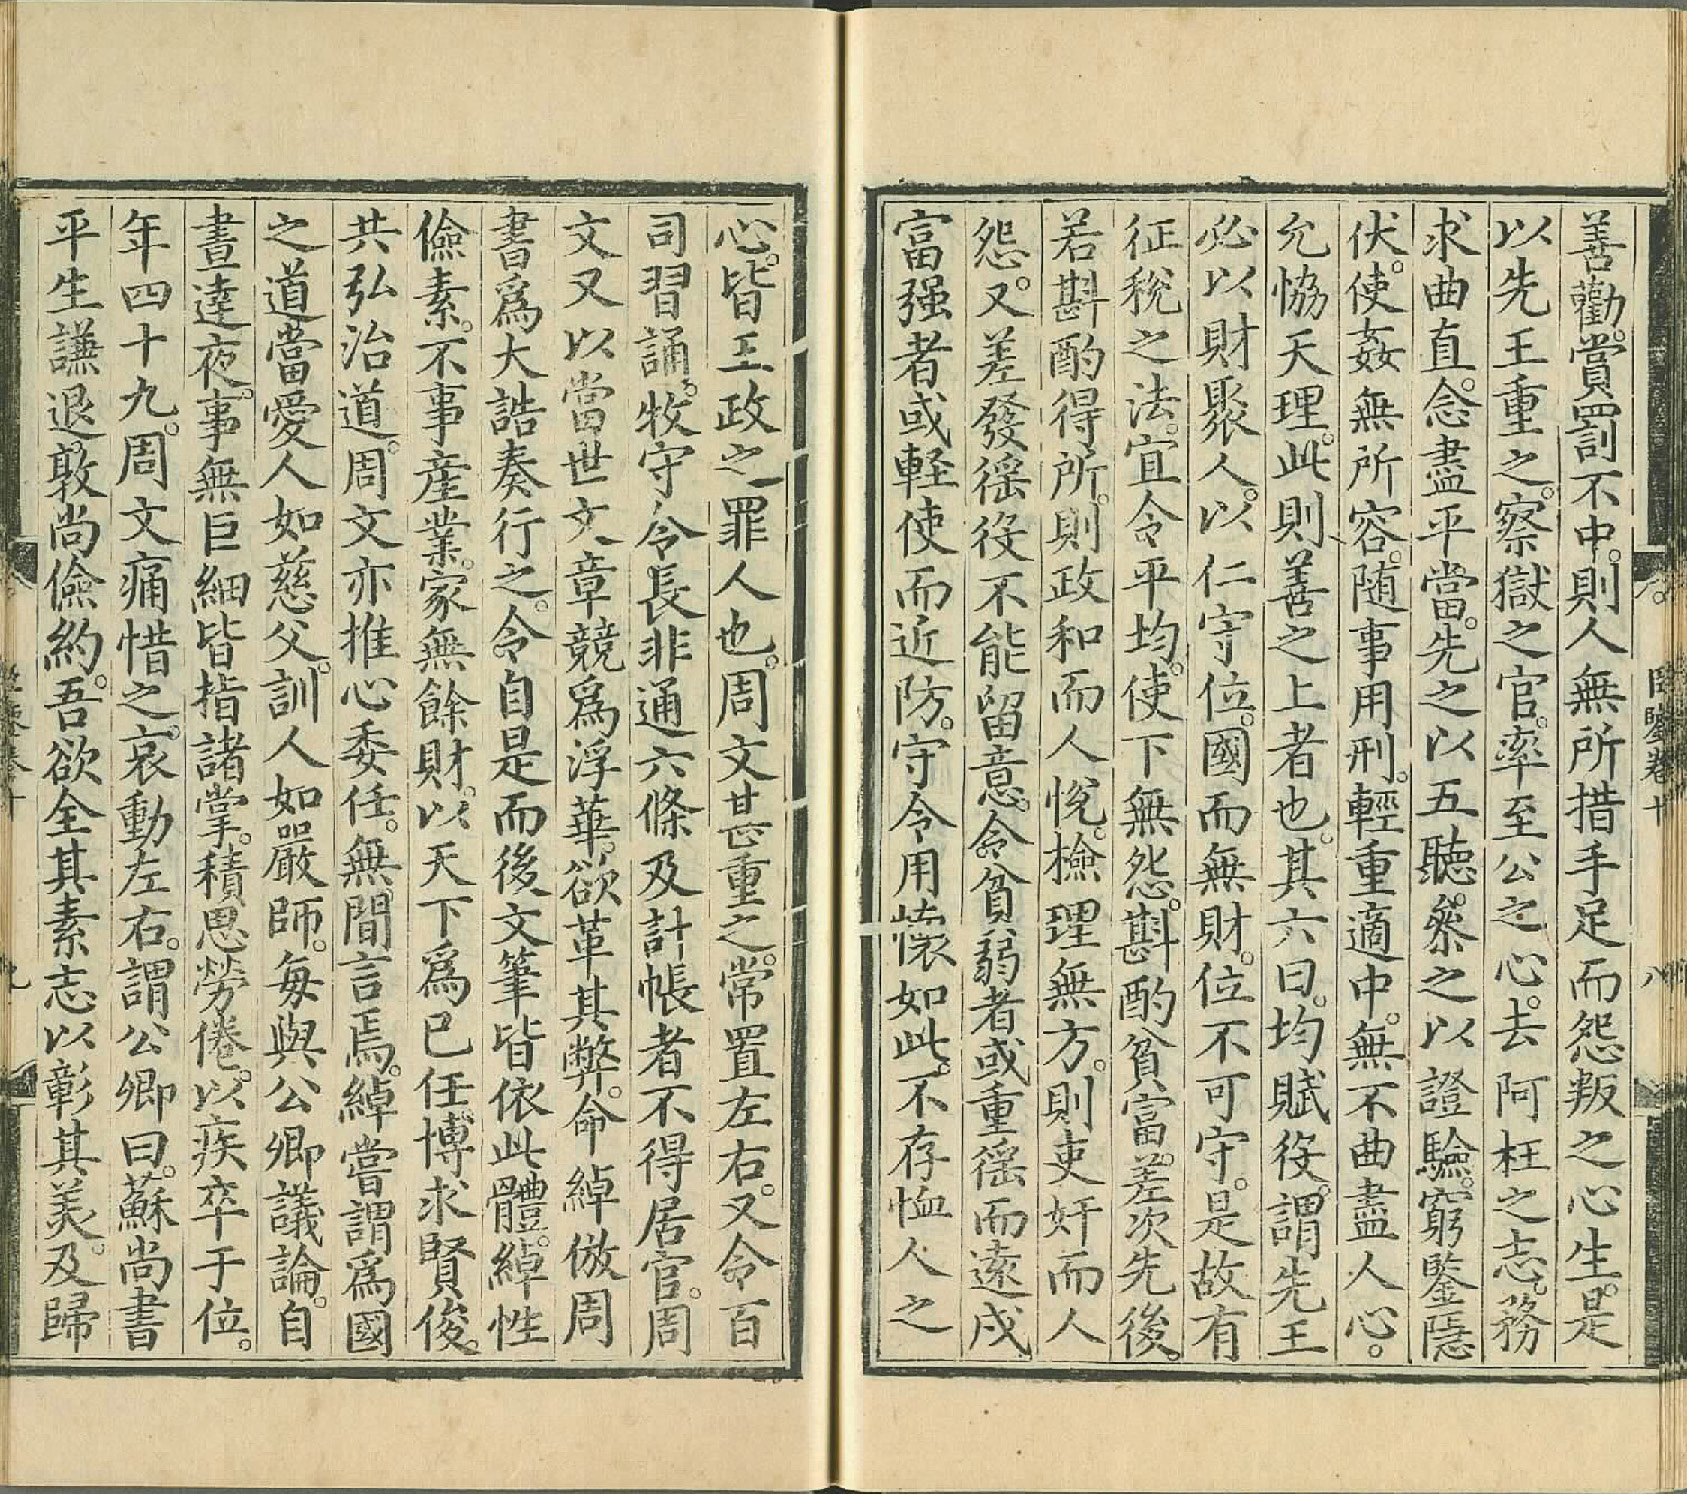 善勸。賞罰不中。則人無所措手足而怨叛之心生。是
以先王重之。察獄之官。率至公之心。去阿枉之志。務
求曲直。念盡平當。先之以五聽。叅之以證驗。窮鑒隱
伏。使姦無所容。随事用刑。輕重適中。無不曲盡人心。
允恊天理。此則善之上者也。其六曰。均賦役。謂先王
必以財聚人。以仁守位。國而無財。位不可守。是故有
征稅之法。宜令平均。使下無怨。斟酌貧富。差次先後。
若斟酌得所。則政和而人悅。檢理無方。則吏奸而人
怨。又差發徭役不能留意。令貧弱者或重徭而遠戍。
富强者或軽使而近防。守令用懷如此。不存恤人之
臣鑒卷十
八
心。皆王政之罪人也。周文甚重之。常置左右。又令百
司習誦。牧守令長非通六條及計帳者不得居官。周
文又以當世文章競爲浮華。欲革其弊。命綽倣周
書爲大誥奏行之。令自是而後文筆皆依此體。綽性
儉素。不事産業。家無餘財。以天下爲已任。博求賢俊。
共弘治道。周文亦推心委任。無間言焉。綽嘗謂爲國
之道當愛人如慈父。訓人如嚴師。每與公卿議論。自
晝達夜。事無巨細皆指諸掌。積思勞倦。以疾卒于位。
年四十九。周文痛惜之。哀動左右。謂公卿曰。蘇尚書
平生謙退敦尚儉約。吾欲全其素志以彰其美。及歸